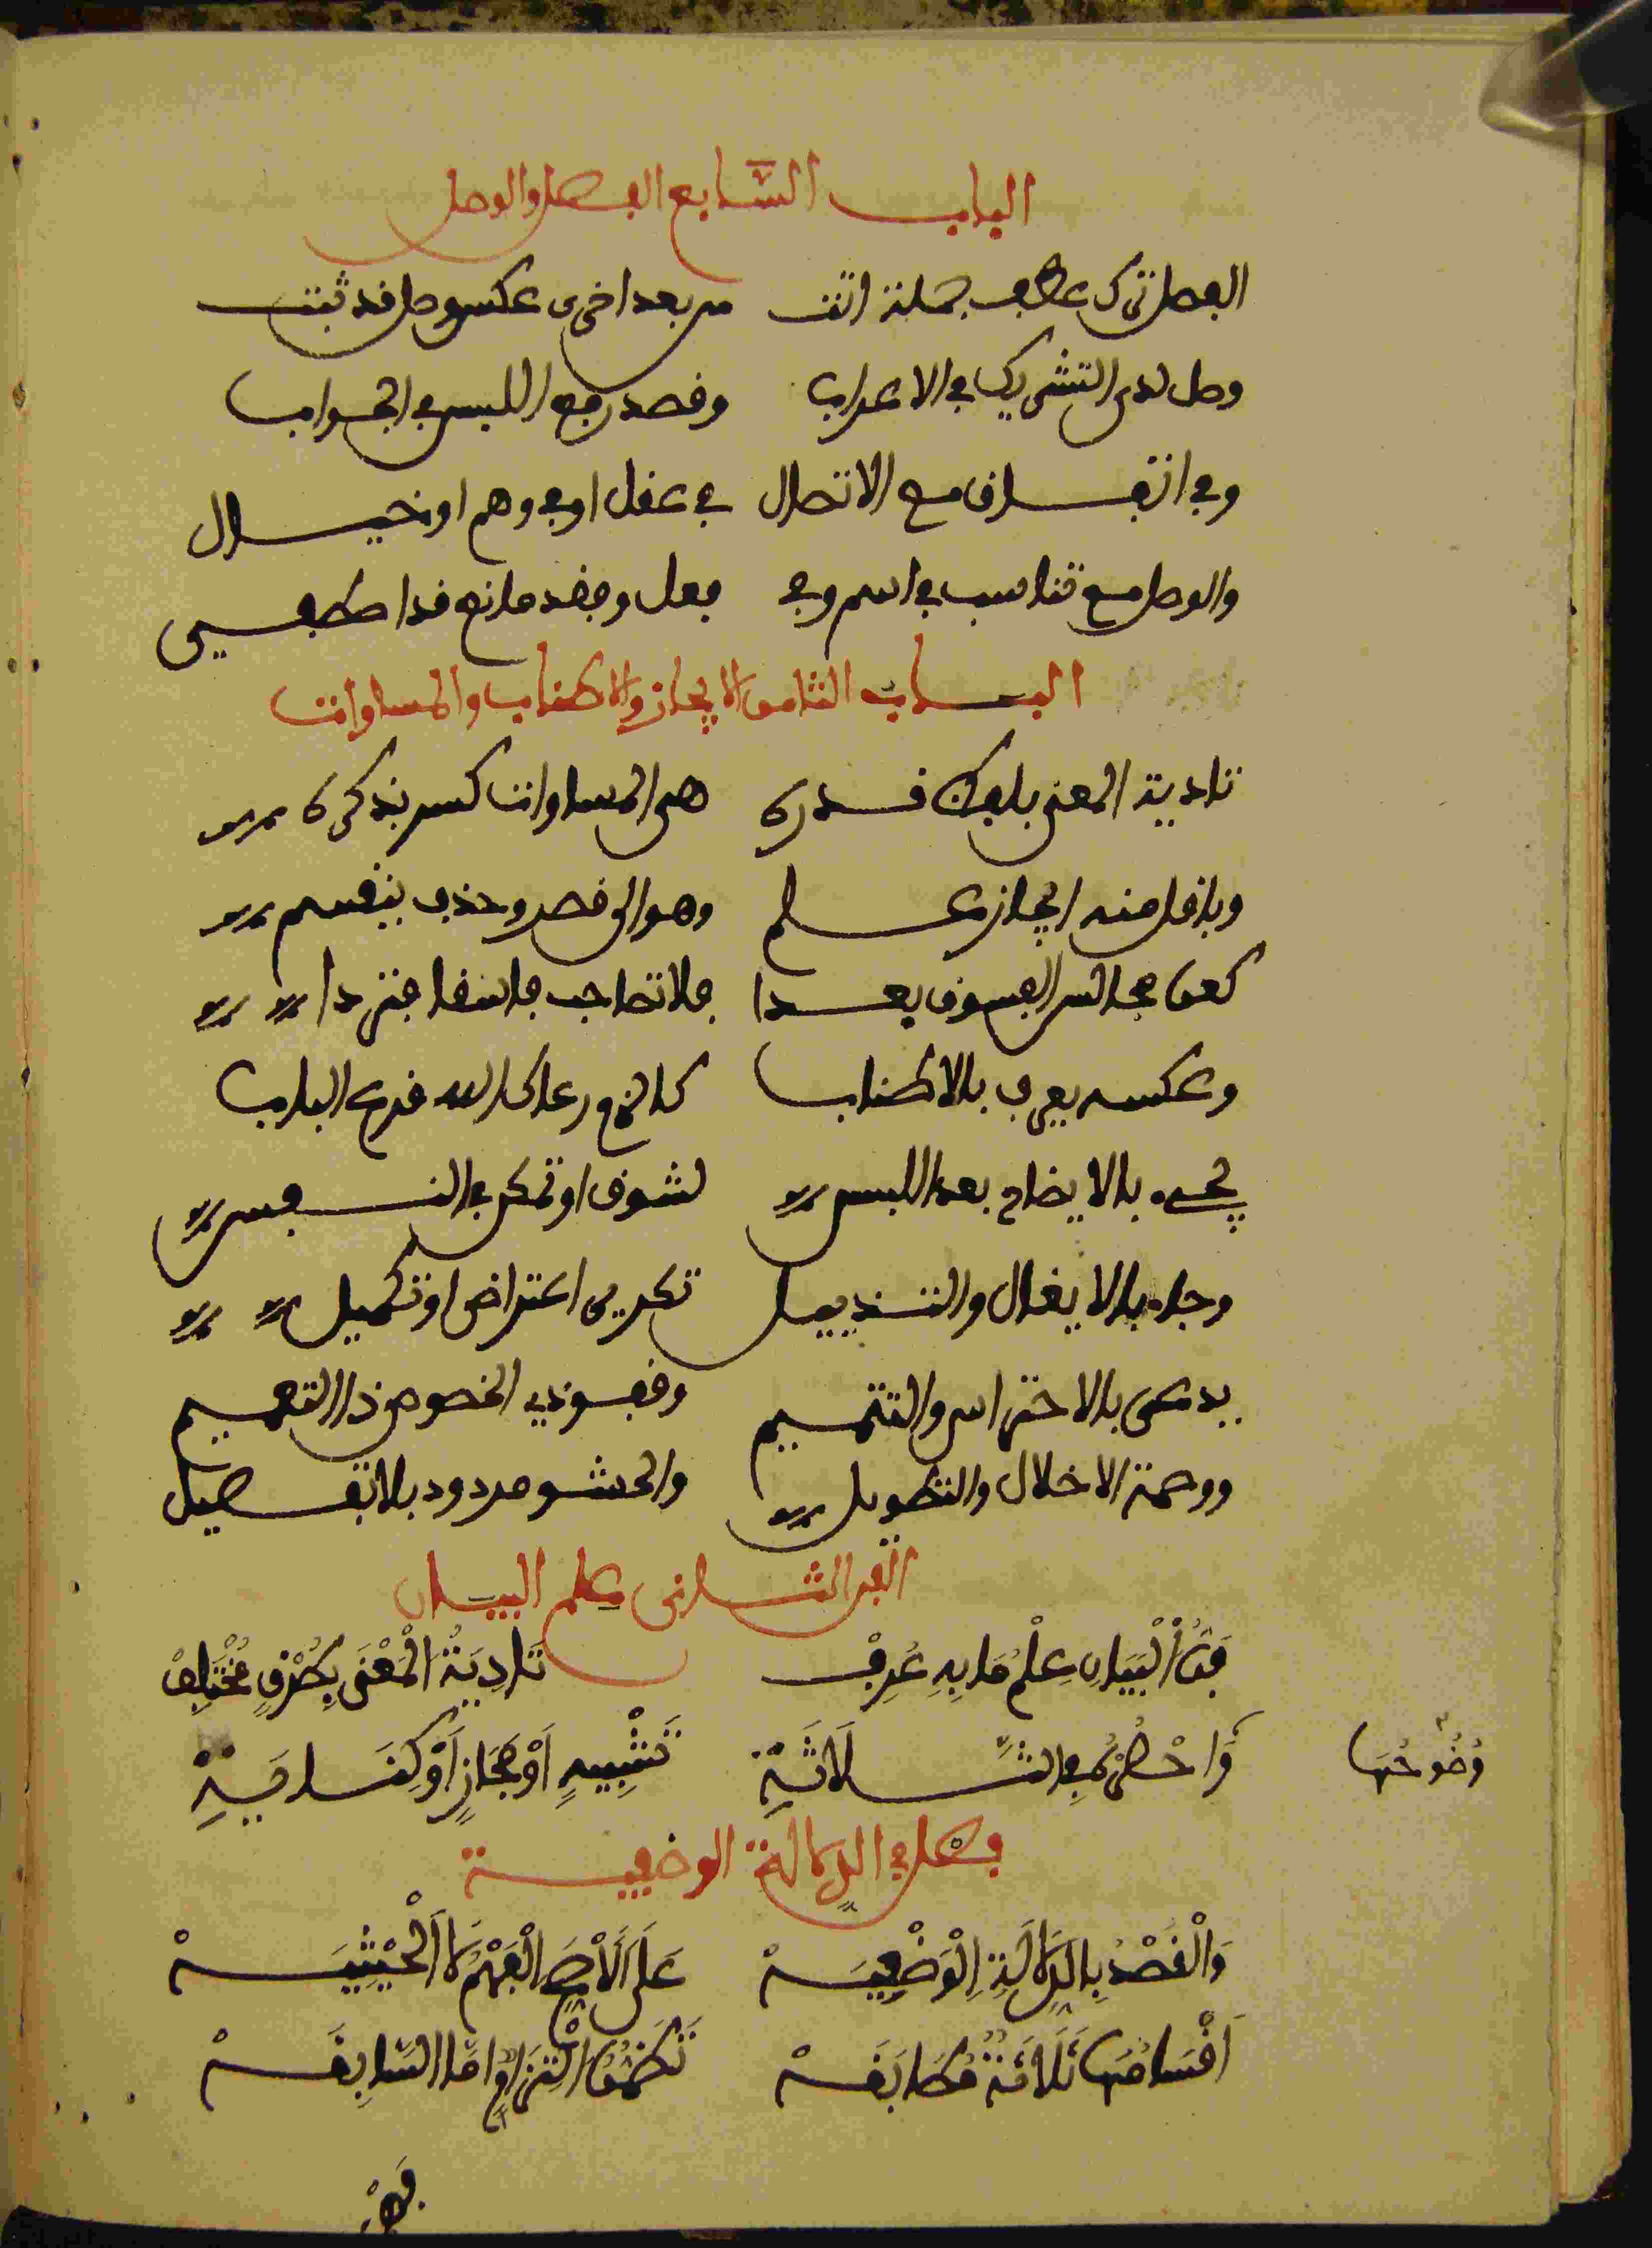 الباب السّابع الفصل والوصل
الفصل ترك عطف جملة اتت من بعد اخرى عكس وصل قد ثبت
وصل لدى التشريك في الاعراب وقصد رفع اللبس في الجواب
وفي اتفاق مع الاتصال في عقل او في وهم او خيال
والوصل مع تناسب في اسم وفي فعل وفقد مانع قد اصطفي
الباب الثامن الايجاز والاطناب والمساوات
تادية المعنى بلفظ قدره هي المساوات كسر بذكره
وباقل منه ايجاز علم وهو الى قصر وحذف ينقسم
كعن مجالس الفسوق بعدا فلا تصاحب فاسقا فتردا
وعكسه يعرف بالاطناب كالزم رعاك الله قرع الباب
يجيء بالايضاح بعد اللبس لشوق او تمكن في النفس
وجاء بالايغال والتذييل تكرير اعتراض او تكميل
يدعى بالاحتراس والتتميم وقفو ذي الخصوص ذا التعميم
ووصمة الاخلال والتطويل والحشو مردود بلا تفصيل
الفن الثاني علم البيان
فَنُّ الْبَيَانِ عِلْمُ مَا بِهِ عُرِفْ تَادِيَةُ الْمَعْنَى بِطُرْقٍ مُخْتَلِفْ
وُضُوحُهَا وَاحْصُرْهُ فِي الثَّلَاثَةِ تَشْبِيهٍ اَوْ مَجَازٍ اَوْ كِنَايَةِ
فصل في الدلالة الوضعية
وَالْقَصْدُ بِالدِّلَالَةِ الْوَضْعِيَهْ عَلَى الْأَصَحِّ الْفَهْمُ لَا الْحَيْثِيَهْ
اَقْسَامُهَا ثَلَاثَةٌ مُطَابَقَهْ تَضَمُّنٌ الْتِزَامٌ اَمَّا السَّابِقَهْ
فَهْيَ